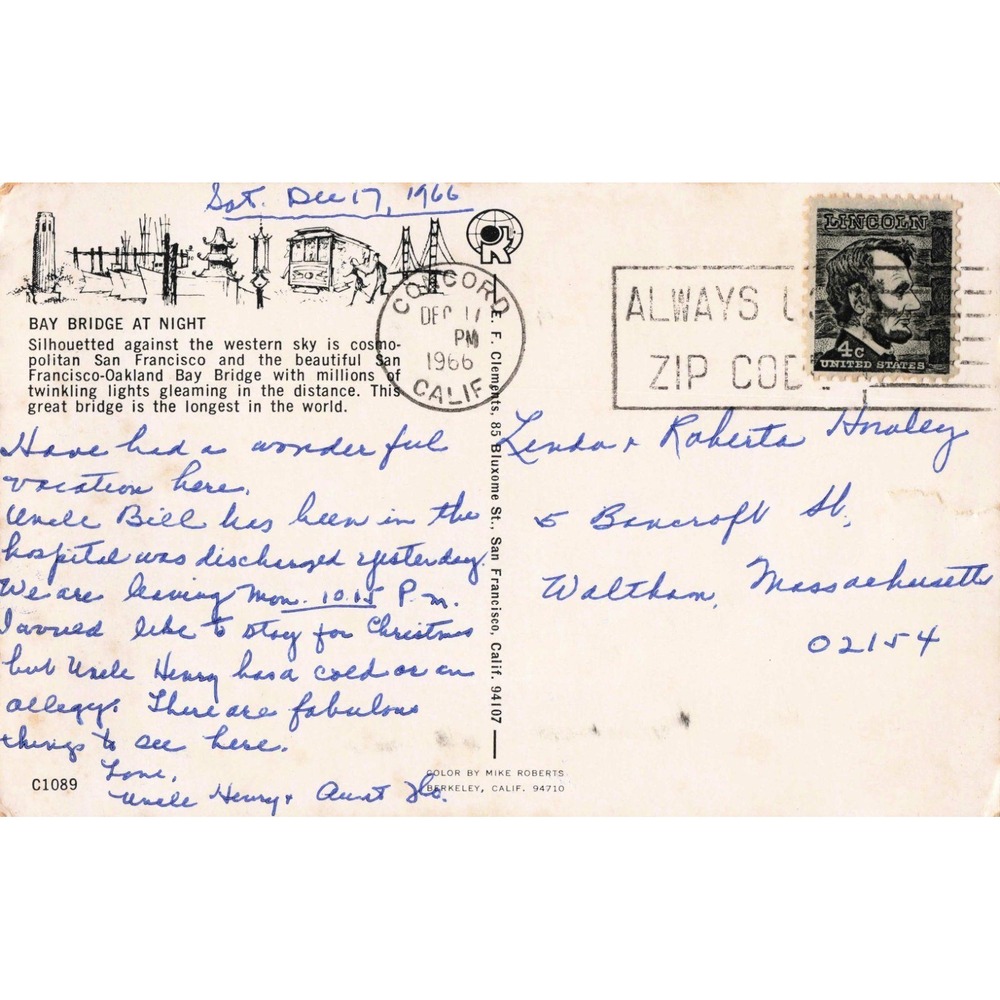 Sat. Dec 17, 1966
BAY BRIDGE AT NIGHT
Silhouetted against the western sky is cosmo-
politan San Francisco and the beautiful San
Francisco-Oakland Bay Bridge with millions of
twinkling lights gleaming in the distance. This
great bridge is the longest in the world.
Have had a wonderful
vacation here.
Uncle Bill has been in the
hospital was discharged yesterday.
We are leaving Mon. 10.15 P.m.
I would like to stay for Christmas
but Uncle Henry has a cold or an
allegy. There are fabulous
things to see here.
Love,
Uncle Henry + Aunt Flo.
C1089
E. F. Clements, 85 Bluxome St., San Francisco, Calif. 94107
COLOR BY MIKE ROBERTS
BERKELEY, CALIF. 94710
CONCORD
DEC 17
PM
1966
CALIF
ALWAYS U
ZIP COD
LINCOLN
4c
UNITED STATES
Linda + Roberta Howley
5 Bancroft St.
Waltham, Massachusetts
02154